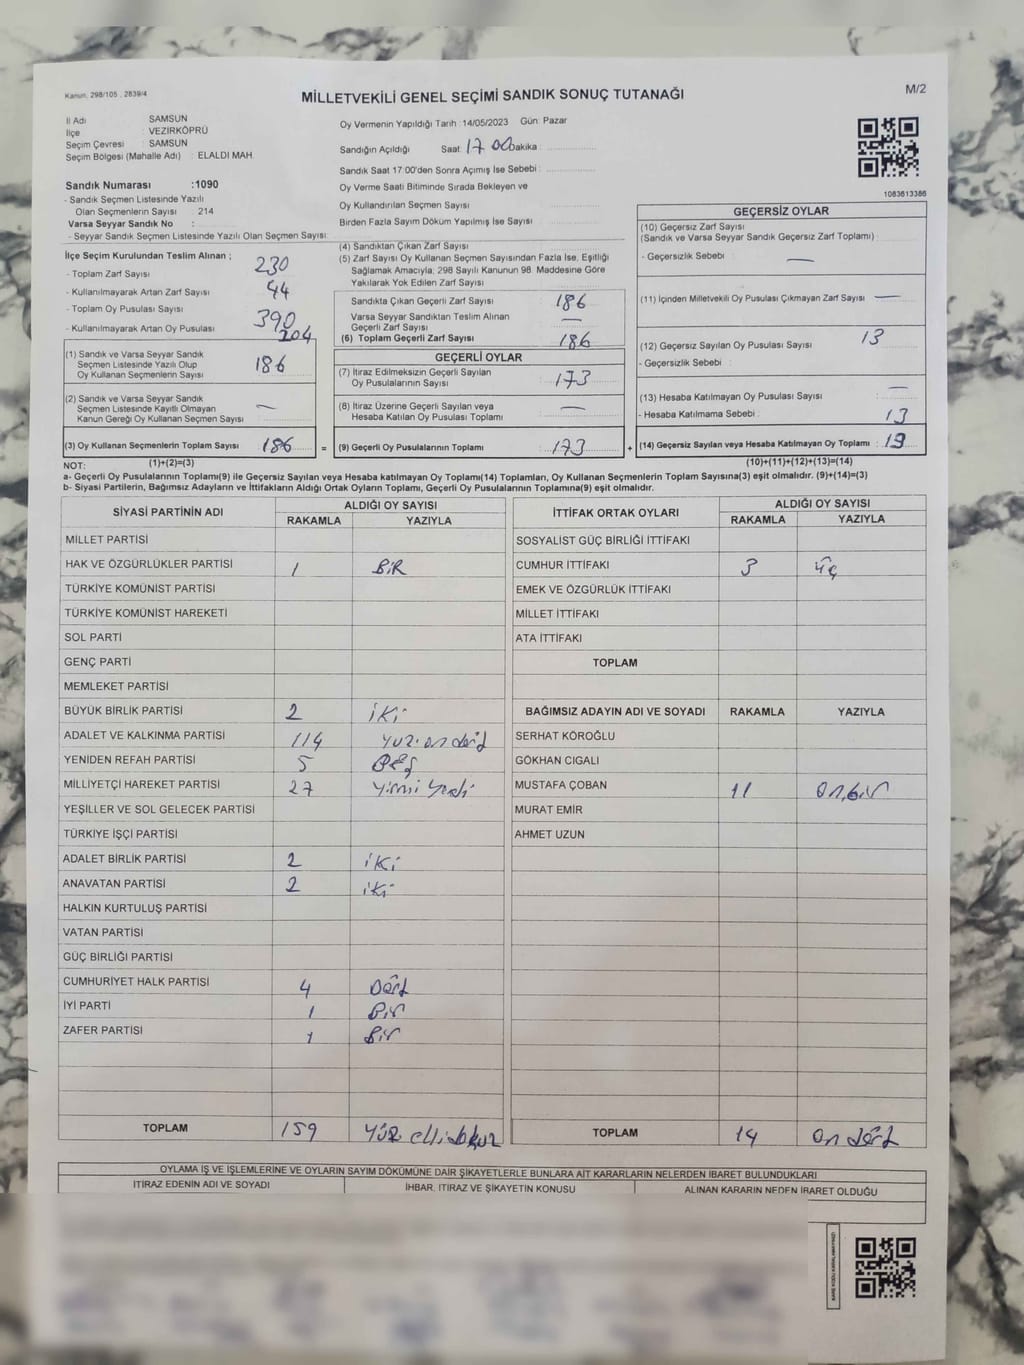 Kanun, 298/105 , 2839/4
MİLLETVEKİLİ GENEL SEÇİMİ SANDIK SONUÇ TUTANAĞI
M/2
İl Adı SAMSUN
İlçe : VEZİRKÖPRÜ
Seçim Çevresi : SAMSUN
Seçim Bölgesi (Mahalle Adı) : ELALDI MAH.
Sandık Numarası :1090
- Sandık Seçmen Listesinde Yazılı
Olan Seçmenlerin Sayısı : 214
Varsa Seyyar Sandık No :
- Seyyar Sandık Seçmen Listesinde Yazılı Olan Seçmen Sayısı:
Oy Vermenin Yapıldığı Tarih :14/05/2023 Gün: Pazar
Sandığın Açıldığı Saat: 17 00 Dakika :
Sandık Saat 17:00'den Sonra Açımış İse Sebebi :
Oy Verme Saati Bitiminde Sırada Bekleyen ve
Oy Kullandırılan Seçmen Sayısı :
Birden Fazla Sayım Döküm Yapılmış İse Sayısı :
1083613386
İlçe Seçim Kurulundan Teslim Alınan ;
- Toplam Zarf Sayısı : 230
- Kullanılmayarak Artan Zarf Sayısı : 44
- Toplam Oy Pusulası Sayısı : 390
- Kullanılmayarak Artan Oy Pusulası : 204
(1) Sandık ve Varsa Seyyar Sandık
Seçmen Listesinde Yazılı Olup
Oy Kullanan Seçmenlerin Sayısı : 186
(2) Sandık ve Varsa Seyyar Sandık
Seçmen Listesinde Kayıtlı Olmayan
Kanun Gereği Oy Kullanan Seçmen Sayısı : —
(3) Oy Kullanan Seçmenlerin Toplam Sayısı : 186 =
(4) Sandıktan Çıkan Zarf Sayısı :
(5) Zarf Sayısı Oy Kullanan Seçmen Sayısından Fazla İse, Eşitliği
Sağlamak Amacıyla; 298 Sayılı Kanunun 98. Maddesine Göre
Yakılarak Yok Edilen Zarf Sayısı :
Sandıkta Çıkan Geçerli Zarf Sayısı : 186
Varsa Seyyar Sandıktan Teslim Alınan
Geçerli Zarf Sayısı : —
(6) Toplam Geçerli Zarf Sayısı : 186
GEÇERLİ OYLAR
(7) İtiraz Edilmeksizin Geçerli Sayılan
Oy Pusulalarının Sayısı : 173
(8) İtiraz Üzerine Geçerli Sayılan veya
Hesaba Katılan Oy Pusulası Toplamı : —
(9) Geçerli Oy Pusulalarının Toplamı : 173 +
GEÇERSİZ OYLAR
(10) Geçersiz Zarf Sayısı
(Sandık ve Varsa Seyyar Sandık Geçersiz Zarf Toplamı) :
- Geçersizlik Sebebi : —
(11) İçinden Milletvekili Oy Pusulası Çıkmayan Zarf Sayısı : —
(12) Geçersiz Sayılan Oy Pusulası Sayısı : 13
- Geçersizlik Sebebi :
(13) Hesaba Katılmayan Oy Pusulası Sayısı : —
- Hesaba Katılmama Sebebi : 13
(14) Geçersiz Sayılan veya Hesaba Katılmayan Oy Toplamı : 13
NOT: (1)+(2)=(3) (10)+(11)+(12)+(13)=(14)
a- Geçerli Oy Pusulalarının Toplamı(9) ile Geçersiz Sayılan veya Hesaba katılmayan Oy Toplamı(14) Toplamları, Oy Kullanan Seçmenlerin Toplam Sayısına(3) eşit olmalıdır. (9)+(14)=(3)
b- Siyasi Partilerin, Bağımsız Adayların ve İttifakların Aldığı Ortak Oyların Toplamı, Geçerli Oy Pusulalarının Toplamına(9) eşit olmalıdır.
SİYASİ PARTİNİN ADI ALDIĞI OY SAYISI
RAKAMLA YAZIYLA
MİLLET PARTİSİ
HAK VE ÖZGÜRLÜKLER PARTİSİ 1 BİR
TÜRKİYE KOMÜNİST PARTİSİ
TÜRKİYE KOMÜNİST HAREKETİ
SOL PARTİ
GENÇ PARTİ
MEMLEKET PARTİSİ
BÜYÜK BİRLİK PARTİSİ 2 iki
ADALET VE KALKINMA PARTİSİ 114 yüz on dört
YENİDEN REFAH PARTİSİ 5 Beş
MİLLİYETÇİ HAREKET PARTİSİ 27 yirmi yedi
YEŞİLLER VE SOL GELECEK PARTİSİ
TÜRKİYE İŞÇİ PARTİSİ
ADALET BİRLİK PARTİSİ 2 iki
ANAVATAN PARTİSİ 2 iki
HALKIN KURTULUŞ PARTİSİ
VATAN PARTİSİ
GÜÇ BİRLİĞİ PARTİSİ
CUMHURİYET HALK PARTİSİ 4 Dört
İYİ PARTİ 1 Bir
ZAFER PARTİSİ 1 Bir
TOPLAM 159 Yüz elli dokuz
İTTİFAK ORTAK OYLARI ALDIĞI OY SAYISI
RAKAMLA YAZIYLA
SOSYALİST GÜÇ BİRLİĞİ İTTİFAKI
CUMHUR İTTİFAKI 3 üç
EMEK VE ÖZGÜRLÜK İTTİFAKI
MİLLET İTTİFAKI
ATA İTTİFAKI
TOPLAM
BAĞIMSIZ ADAYIN ADI VE SOYADI RAKAMLA YAZIYLA
SERHAT KÖROĞLU
GÖKHAN CIGALI
MUSTAFA ÇOBAN 11 on bir
MURAT EMİR
AHMET UZUN
TOPLAM 14 on dört
OYLAMA İŞ VE İŞLEMLERİNE VE OYLARIN SAYIM DÖKÜMÜNE DAİR ŞİKAYETLERLE BUNLARA AİT KARARLARIN NELERDEN İBARET BULUNDUKLARI
İTİRAZ EDENİN ADI VE SOYADI İHBAR, İTİRAZ VE ŞİKAYETİN KONUSU ALINAN KARARIN NEDEN İBARET OLDUĞU